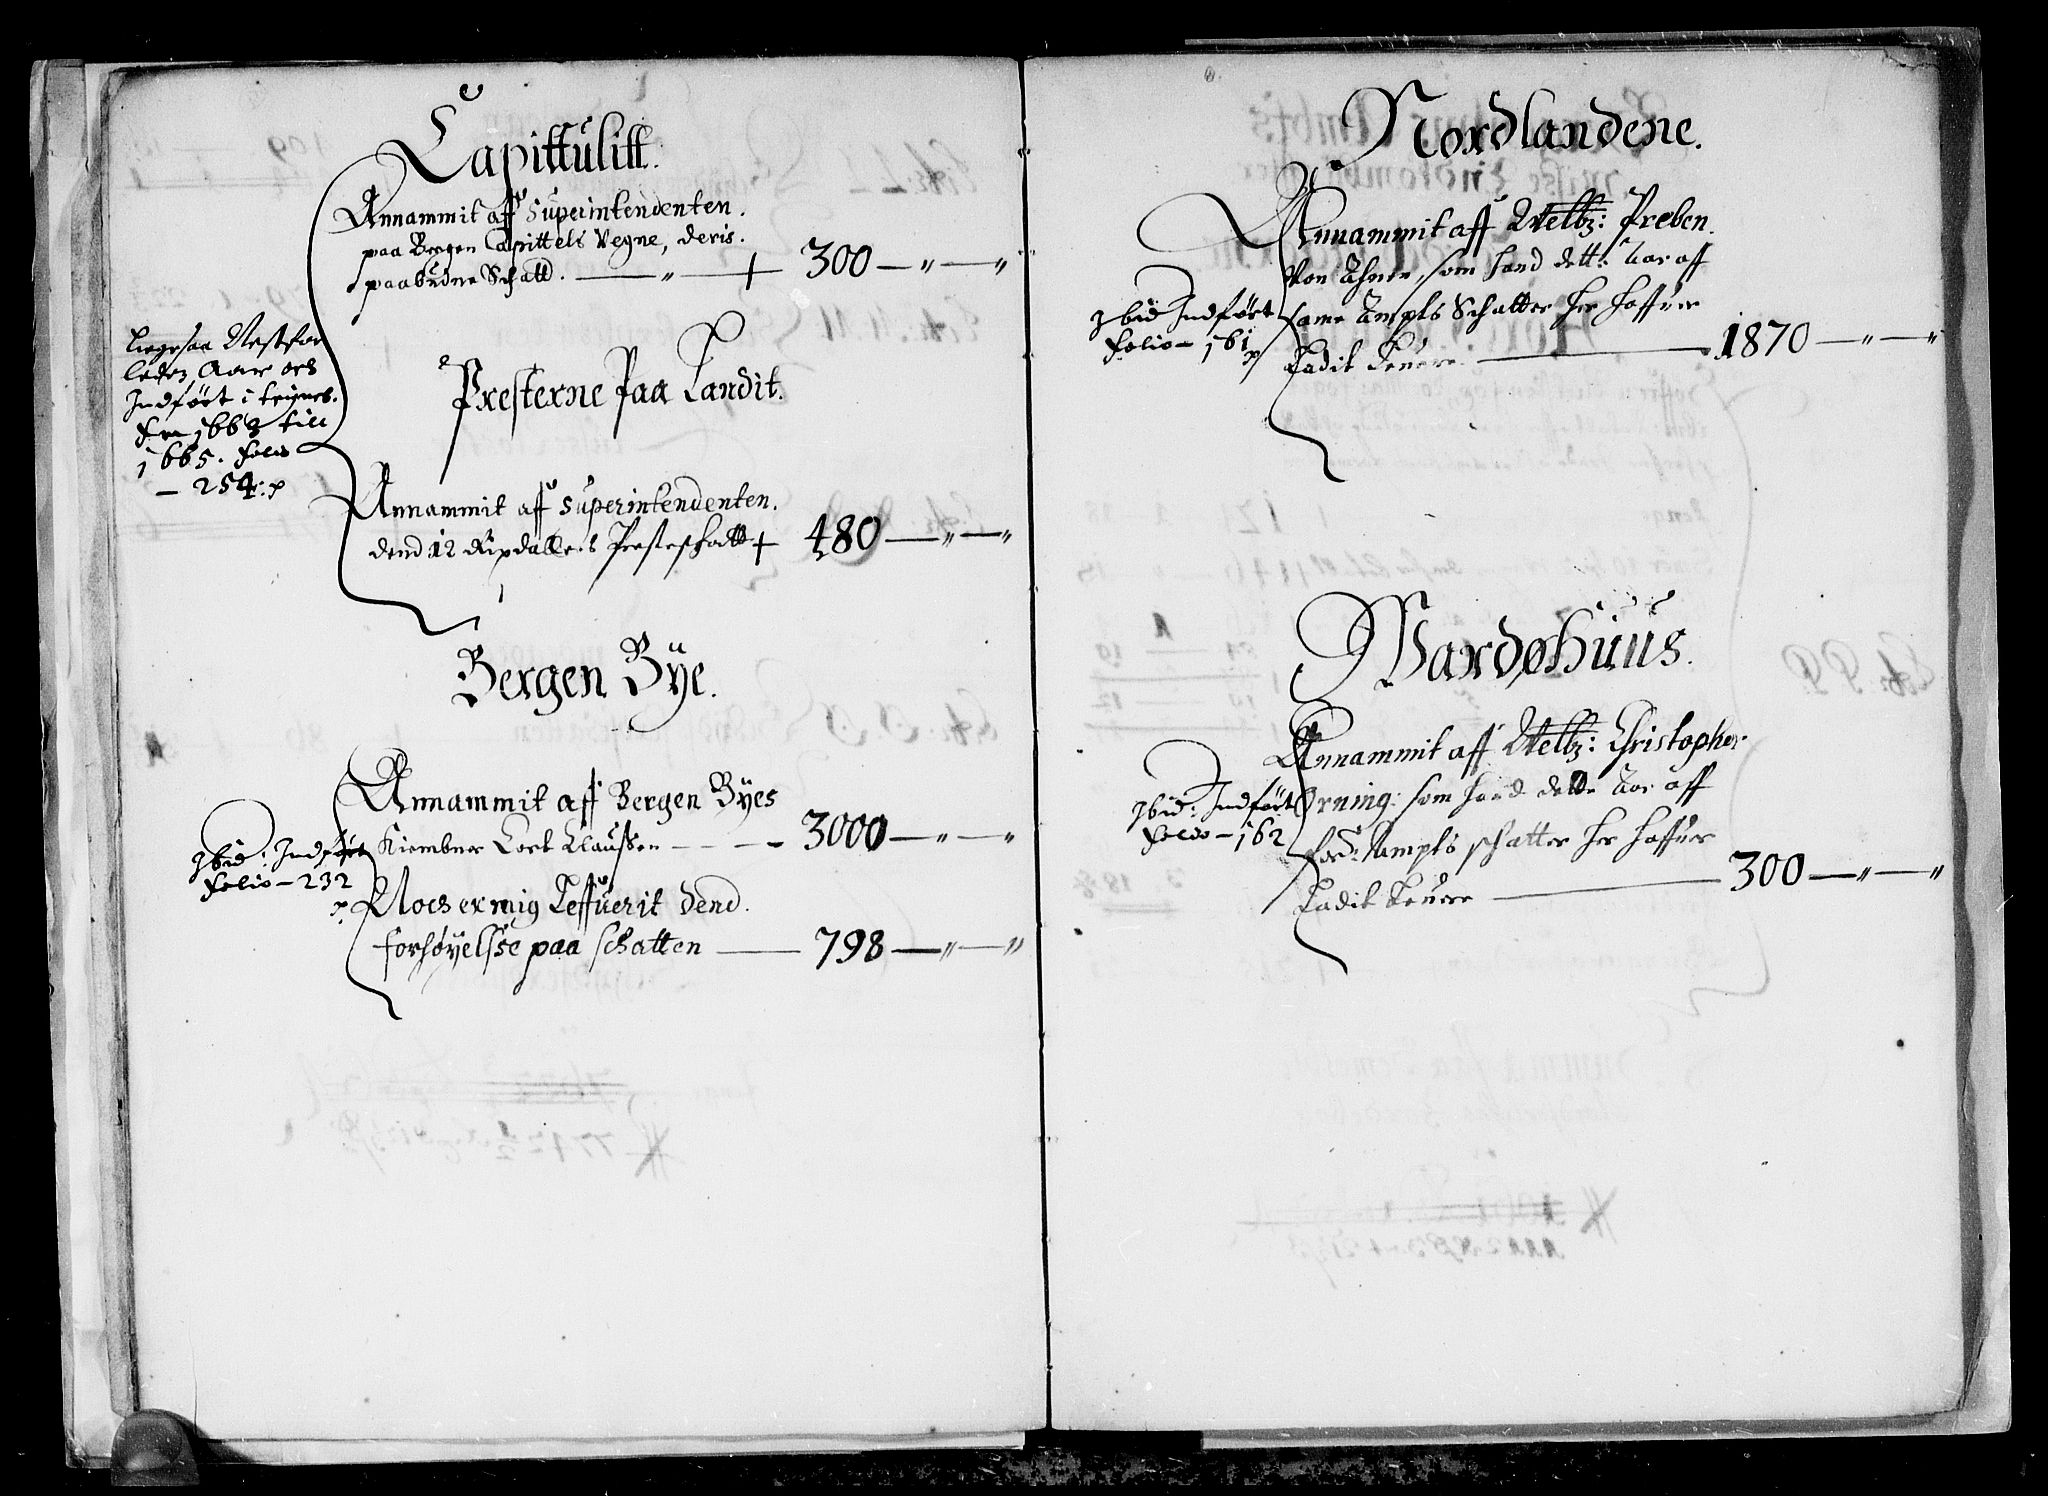 Capittulitt.
Annammit aff Superintendenten.
paa Bergen Capittels Vegne, deris.
paabudne Schatt. — „ — + 300 — „ — „
Ligesaa Nestfor
leden Aar och
Indført i
fra 1663 till
1665. folio
— 254:
Presterne Paa Landit.
Annammit aff Superintendenten.
dend 12 Rixdallers Presteschatt + 480 — „ — „
Bergen Bÿe.
Annammit aff Bergen Bÿes
Kiembner Cort Claussen - - - - 3000 — „ — „
Ibid: Indført
folio — 232
Noch er mig Leffuerit dend.
forhøyelsse paa schatten — 798 — „ — „
Nordlandene.
Annammit aff Welb: Preben.
Von Ahnen, som hand dett: Aar aff
same Ampts Schatter her haffuer
Ladit Leuere. — 1870 — „ — „
Ibid Indført
folio — 161
Wardøhuus.
Annammit aff Welb: Christopher
Orning: som hand dette Aar aff
for: Ampts schatter her haffuer
Ladit Leuere — 300 — „ — „
Ibid: Indført
folio — 162